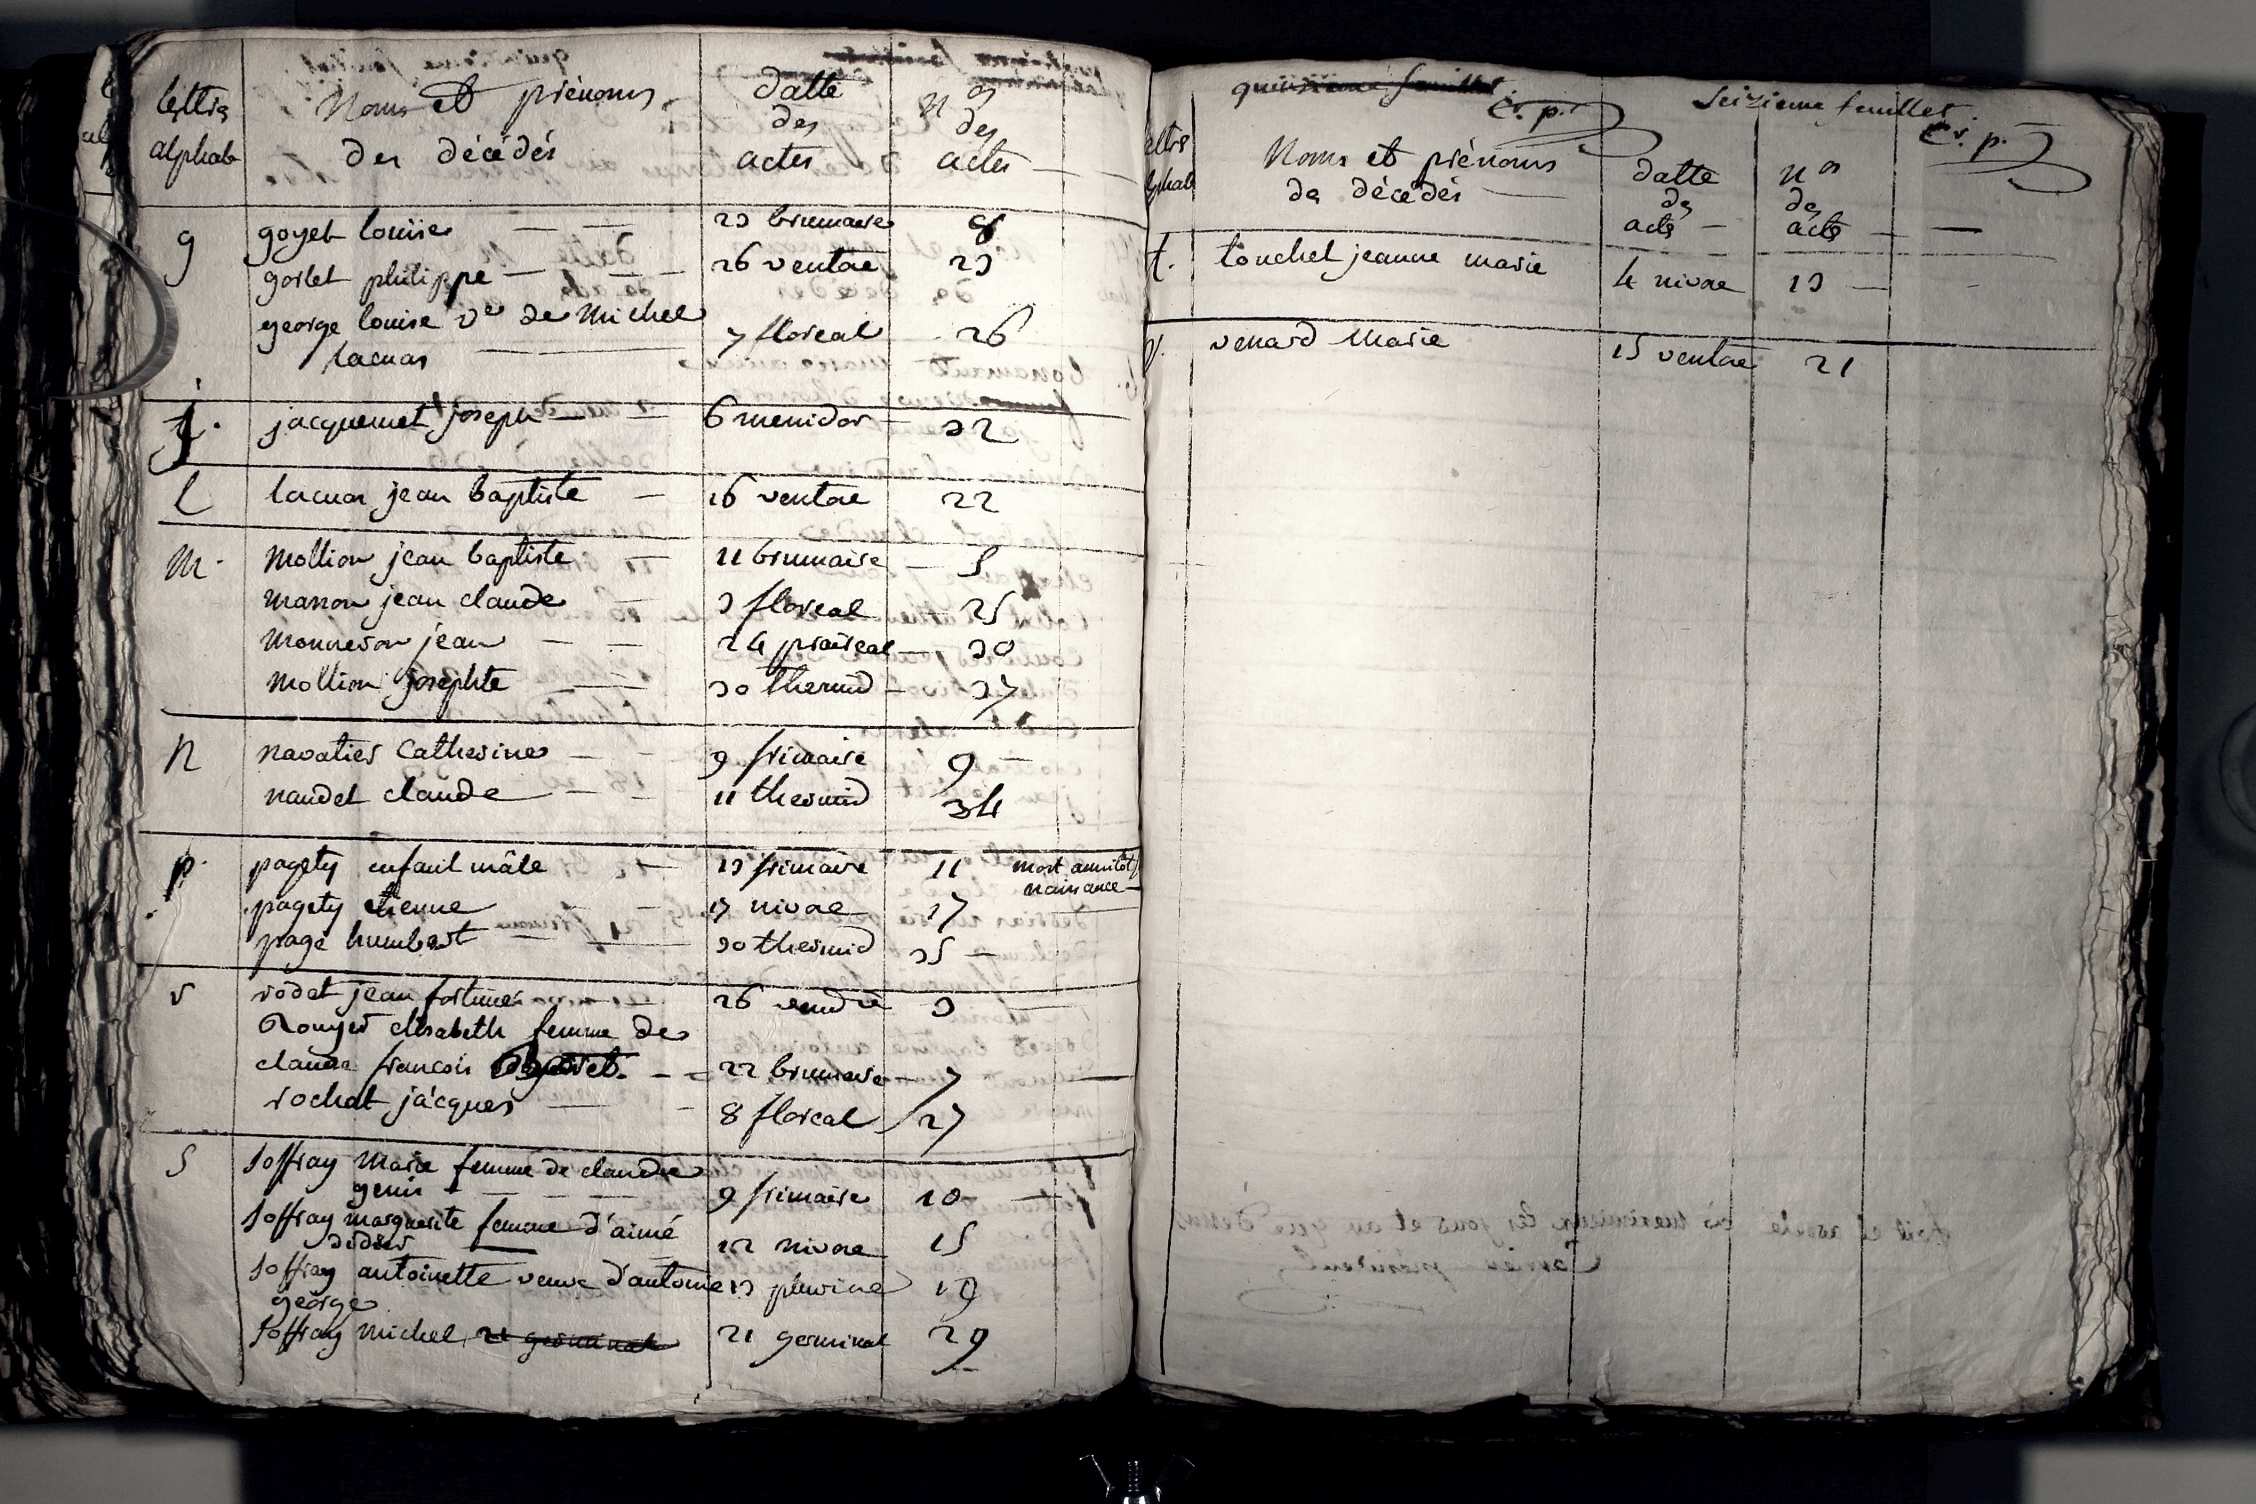 lettres alphab
Noms et prénoms des décédés
datte des actes
nos des actes
g
goyet louise 23 brumaire 8
gorlet philippe 26 ventose 23
george louise ve de Michel
lacuas 7 floreal 26
j.
jacquemet joseph 6 messidor 32
l
lacuas jean baptiste 16 ventose 22
m.
mollion jean baptiste 11 brumaire 5
jean claude 3 floreal 25
jean 24 praireal 30
mollion josephte 30 thermid 37
n
navatier Catherine 9 frimaire 9
naudet claude 11 thermid 34
p.
pagety enfant mâle 13 frimaire 11 mort aussitôt
naissance
pagety etienne 17 nivose 17
page humbert 30 thermid 35
r
rodet jean fortuné 26 vendre 3
Rouyer elisabeth femme de
claude francois 22 brumaire 7
rochat jacques 8 floreal 27
s
soffray Marie femme de claude
genis 9 frimaire 10
soffray marguerite femme d'aimé
didier 12 nivose 15
soffray antoinette veuve d'antoine 13 pluviose 19
george
soffray michel 21 germinal 21 germinal 29
quinzieme feuillet
C. p.
Seizieme feuillet
C. p.
Noms et prénoms
de décédés
datte
de
acts
nos
de
acts
t. touchet jeanne marie 4 nivose 13
v. venard Marie 15 ventose 21